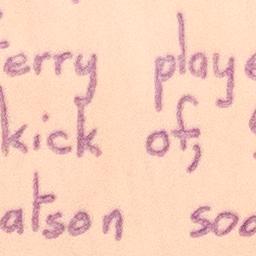 erry playe
kick of;
atson soo